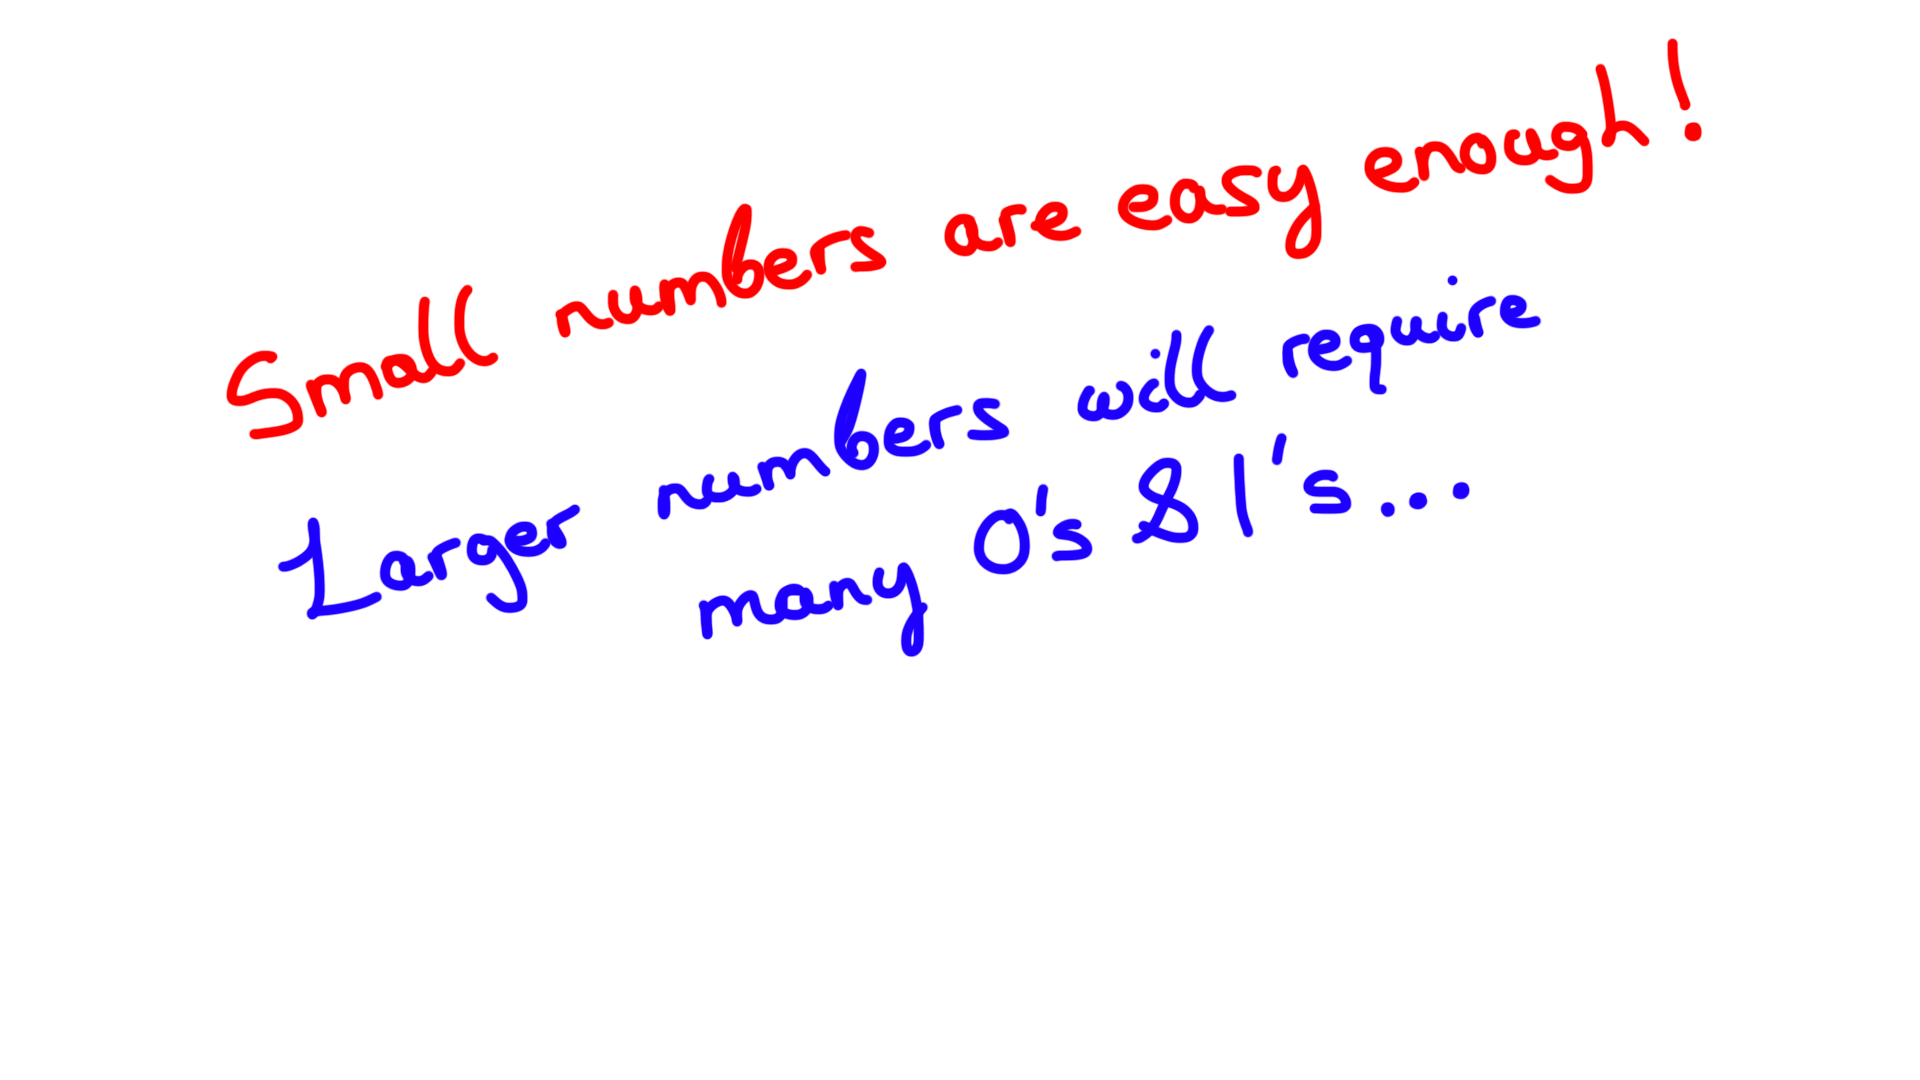 Small numbers are easy enough!
Larger numbers will require
many 0's & 1's...